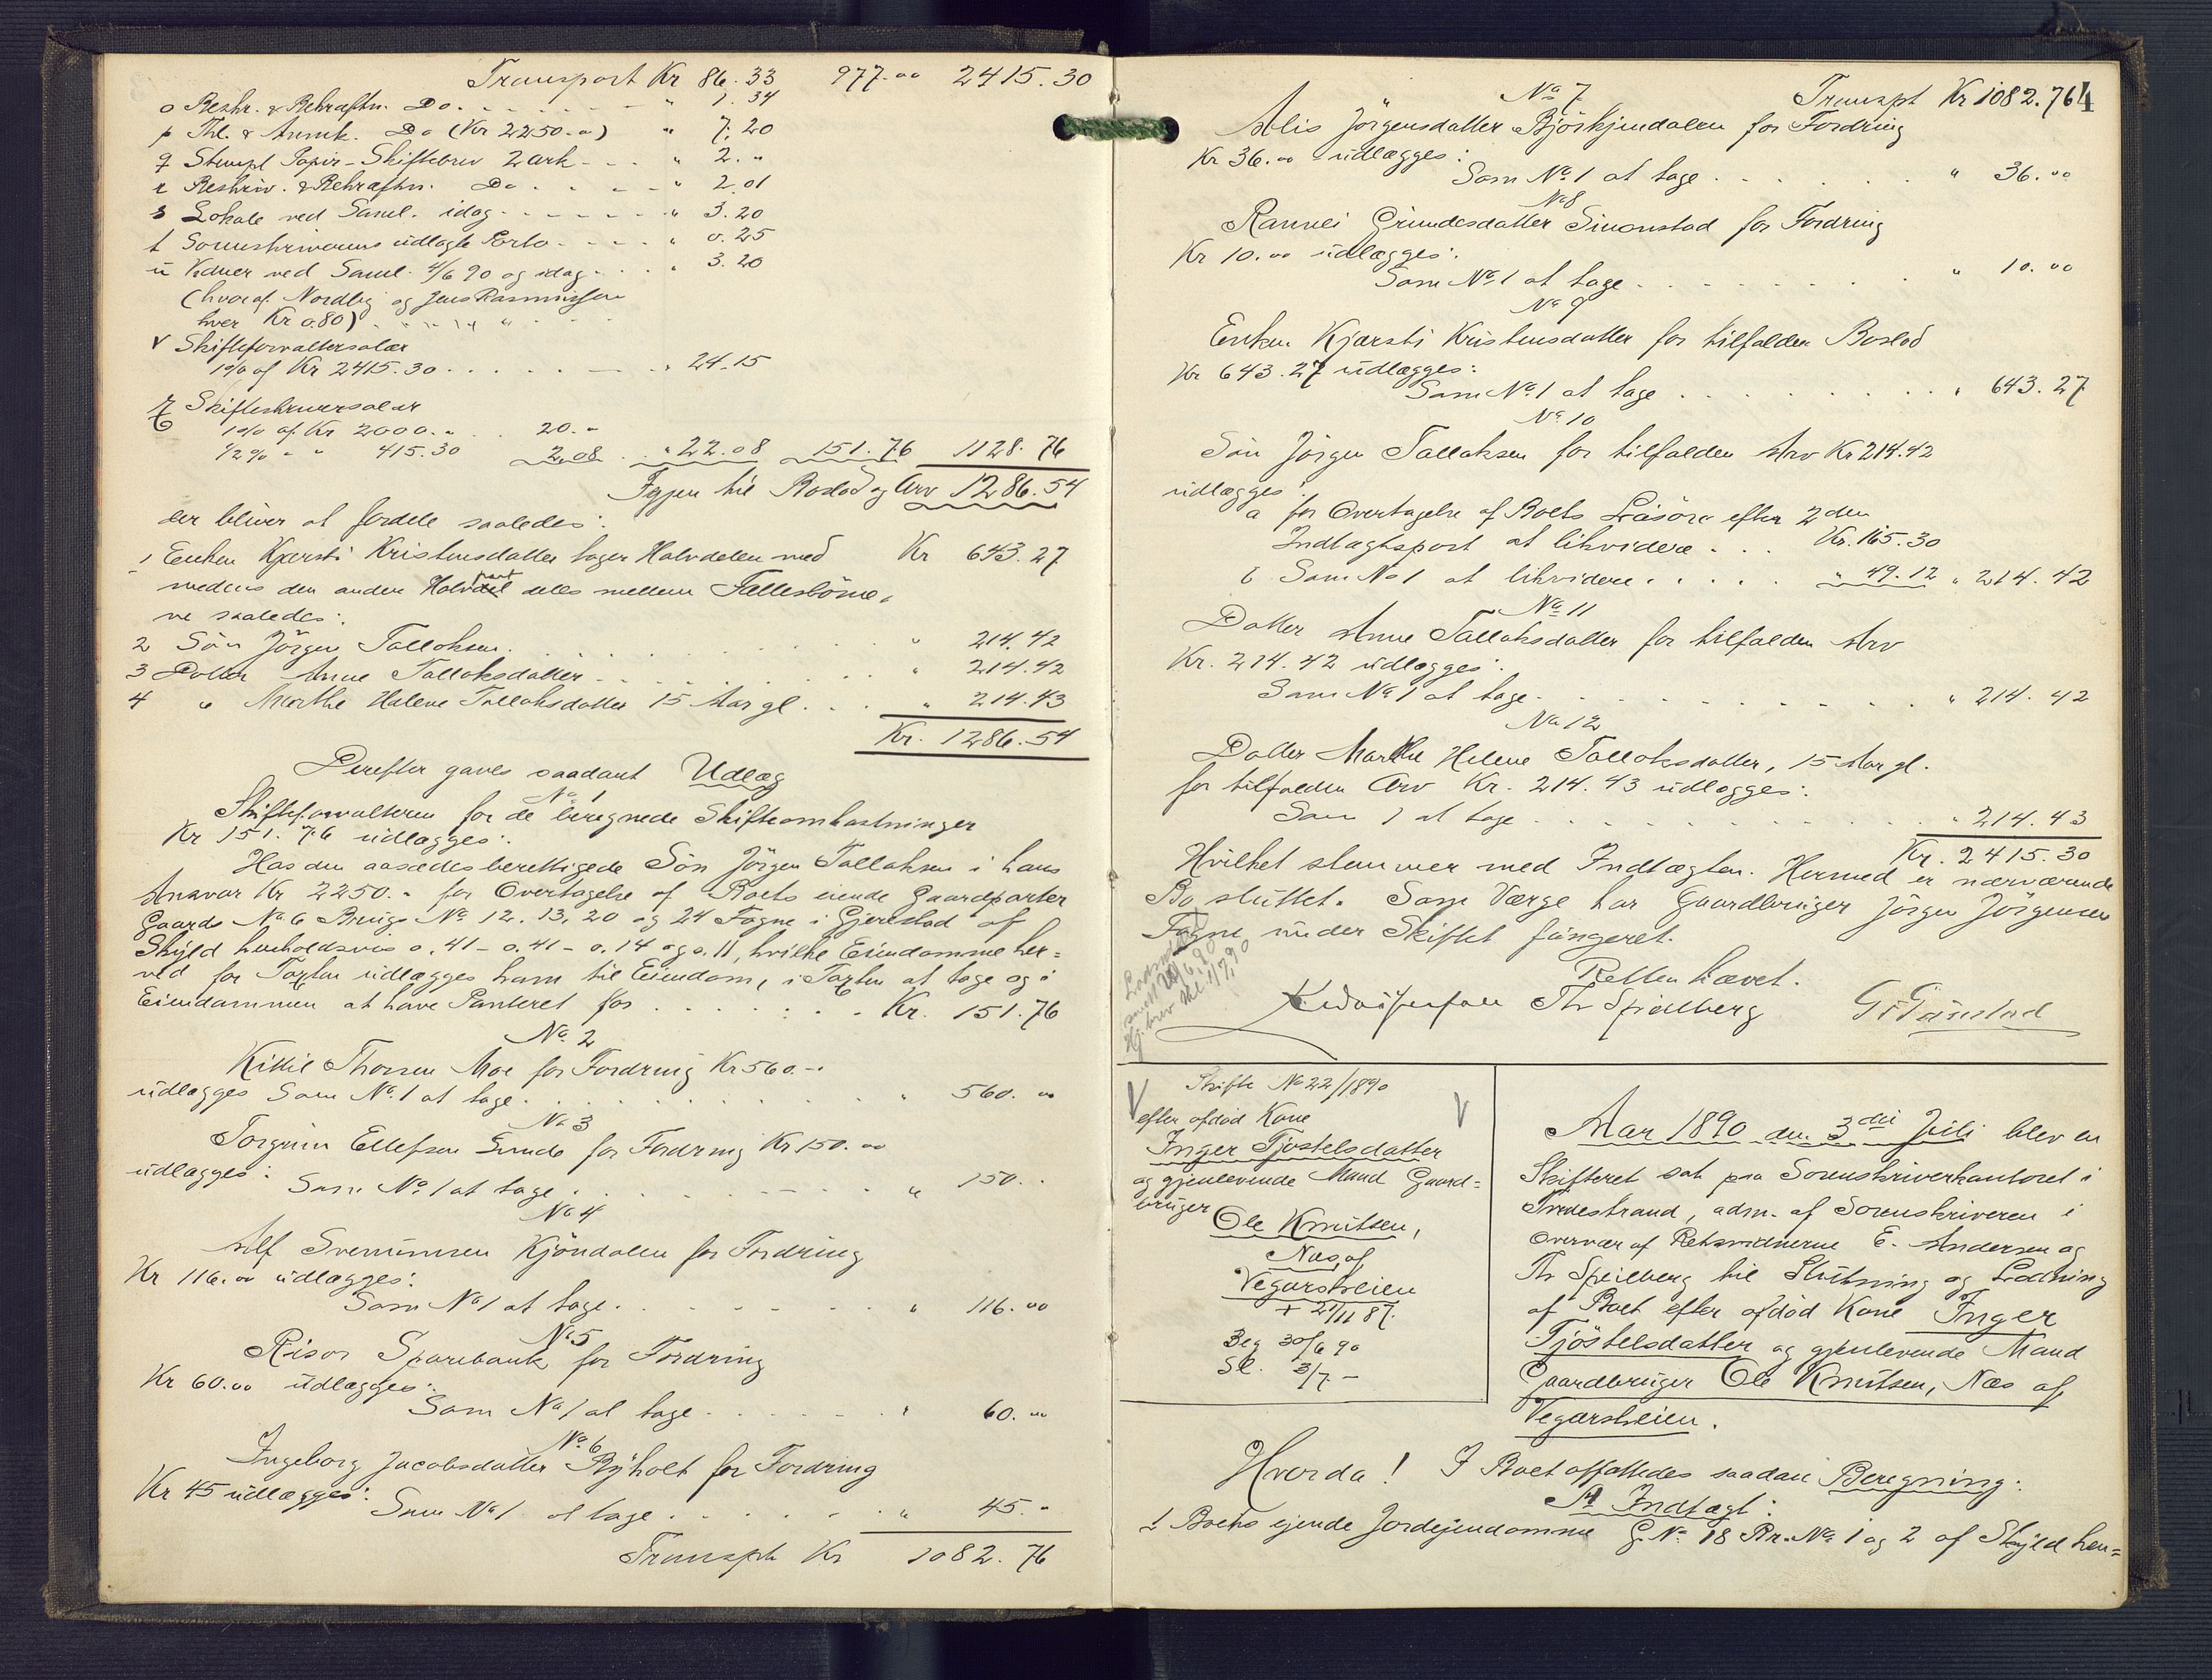 Transport Kr 86.33 977.00 2415.30
o Beskr. & Bekræftn. Do. " 1.34
p Thl. & Annek. Do (Kr 2250.00) " 7.20
q Stempl. Papir - Skiftebrev 2 ark " 2. "
r Beskriv. & Bekræftn. Do " 2.01
s Lokale ved Saml. idag " 3.20
t Sorenskriverens udlagte Porto " 0.25
u Vidner ved Saml. 4/6 90 og idag " 3.20
(hvoraf Nordby og Jens Rasmussen
hver Kr 0.80)
v Skifteforvaltersalær
1% af Kr 2415.30 " 24.15
x Skifteskriversalær
1% af Kr 2000. " 20. "
1/2% " " 415.30 2.08 " 22.08 151.76 1128.76
Igjen til Boslod og Arv 1286.54
der bliver at fordele saaledes:
1 Enken Kjærsti Kristensdatter tager Halvdelen med Kr 643.27
medens den anden Halvpart deles mellem Fællesbørne-
ne saaledes:
2 Søn Jörgen Tallaksen " 214.42
3 Datter Anne Tallaksdatter " 214.42
4 " Marthe Helene Tallaksdatter 15 Aar gl. " 214.43
Kr. 1286.54
Derefter gaves saadant Udlæg
No 1
Skifteforvalteren for de beregnede Skifteomkostninger
Kr 151.76 udlægges:
Hos den aasædesberettigede Søn Jörgen Tallaksen i hans
Ansvar Kr 2250. " for Overtagelse af Boets eiende Gaardparter
Gaards No 6 Brugs No 12. 13, 20 og 24 Fogne i Gjerestad af
Skyld henholdsvis 0.41 - 0.41 - 0.14 og 0.11, hvilke Eiendomme her=
ved for Taxten udlægges ham til Eiendom, i Taxten at tage og i
Eiendommen at have Panteret for Kr. 151.76
No 2
Kittil Thorsen Moe for Fordring Kr 560. -
udlægges Som No 1 at tage " 560. 00
No 3
Torgrim Ellefsen Sunde for Fordring Kr 150.00
udlægges:
Som No 1 at tage " 150. "
No 4
Alf Svenumsen Kjöndalen for Fordring
Kr 116.00 udlægges:
Som No 1 at tage " 116.00
No 5
Risør Sparebank for Fordring
Kr 60.00 udlægges:
Som No 1 at tage " 60. 00
No 6
Ingeborg Jacobsdatter Ryholt for Fordring
Kr 45 udlægges:
Som No 1 at tage " 45. "
Transpt Kr 1082.76
Transpt Kr 1082.76 4
No 7
Alis Jörgensdatter Björkjendalen for Fordring
Kr 36.00 udlægges:
Som No 1 at tage " 36.00
No 8
Rannei Gundesdatter Simonstad for Fordring
Kr 10.00 udlægges:
Som No 1 at tage " 10.00
No 9
Enken Kjærsti Kristensdatter for tilfalden Boslod
Kr 643.27 udlægges:
Som No 1 at tage " 643.27
No 10
Søn Jörgen Tallaksen for tilfalden Arv Kr 214.42
udlægges:
a for Overtagelse af Boets Løsøre efter 2den
Indtægtspost at likvidere Kr. 165.30
b Som No 1 at likvidere " 49.12 " 214.42
No 11
Datter Anne Tallaksdatter for tilfalden Arv
Kr. 214.42 udlægges:
Som No 1 at tage " 214.42
No 12
Datter Marthe Helene Tallaksdatter, 15 Aar gl.
for tilfalden Arv Kr. 214.43 udlægges:
Som 1 at tage " 214.43
Kr. 2415.30
Hvilket stemmer med Indtægten. Hermed er nærværende
Bo sluttet. Som Værge har Gaardbruger Jörgen Jörgensen
Fogne under Skiftet fungeret.
Retten hævet.
Th Speilberg
Skifte No 22/1890
efter afdød Kone
Inger Tjostelsdatter
og gjenlevende Mand Gaard=
bruger
Ole Knutsen,
Næs af
Vegarsheien
+ 27/11 87.
Beg 30/6 90
Sl. 3/7 -
Aar 1890 den 3die Juli blev en
Skifteret sat paa Sorenskriverkontoret i
Tvedestrand, adm. af Sorenskriveren i
Overvær af Retsvidnerne E. Andersen og
Th Speilberg til Slutning og Lodning
af Boet efter afdød Kone Inger
Tjöstelsdatter og gjenlevende Mand
Gaardbruger Ole Knutsen, Næs af
Vegarsheien.
Hvorda! I Boet affattedes saadan Beregning:
A Indtægt:
1 Boets ejende Jordejendomme G. No 18 Br. No 1 og 2 af Skyld hen=